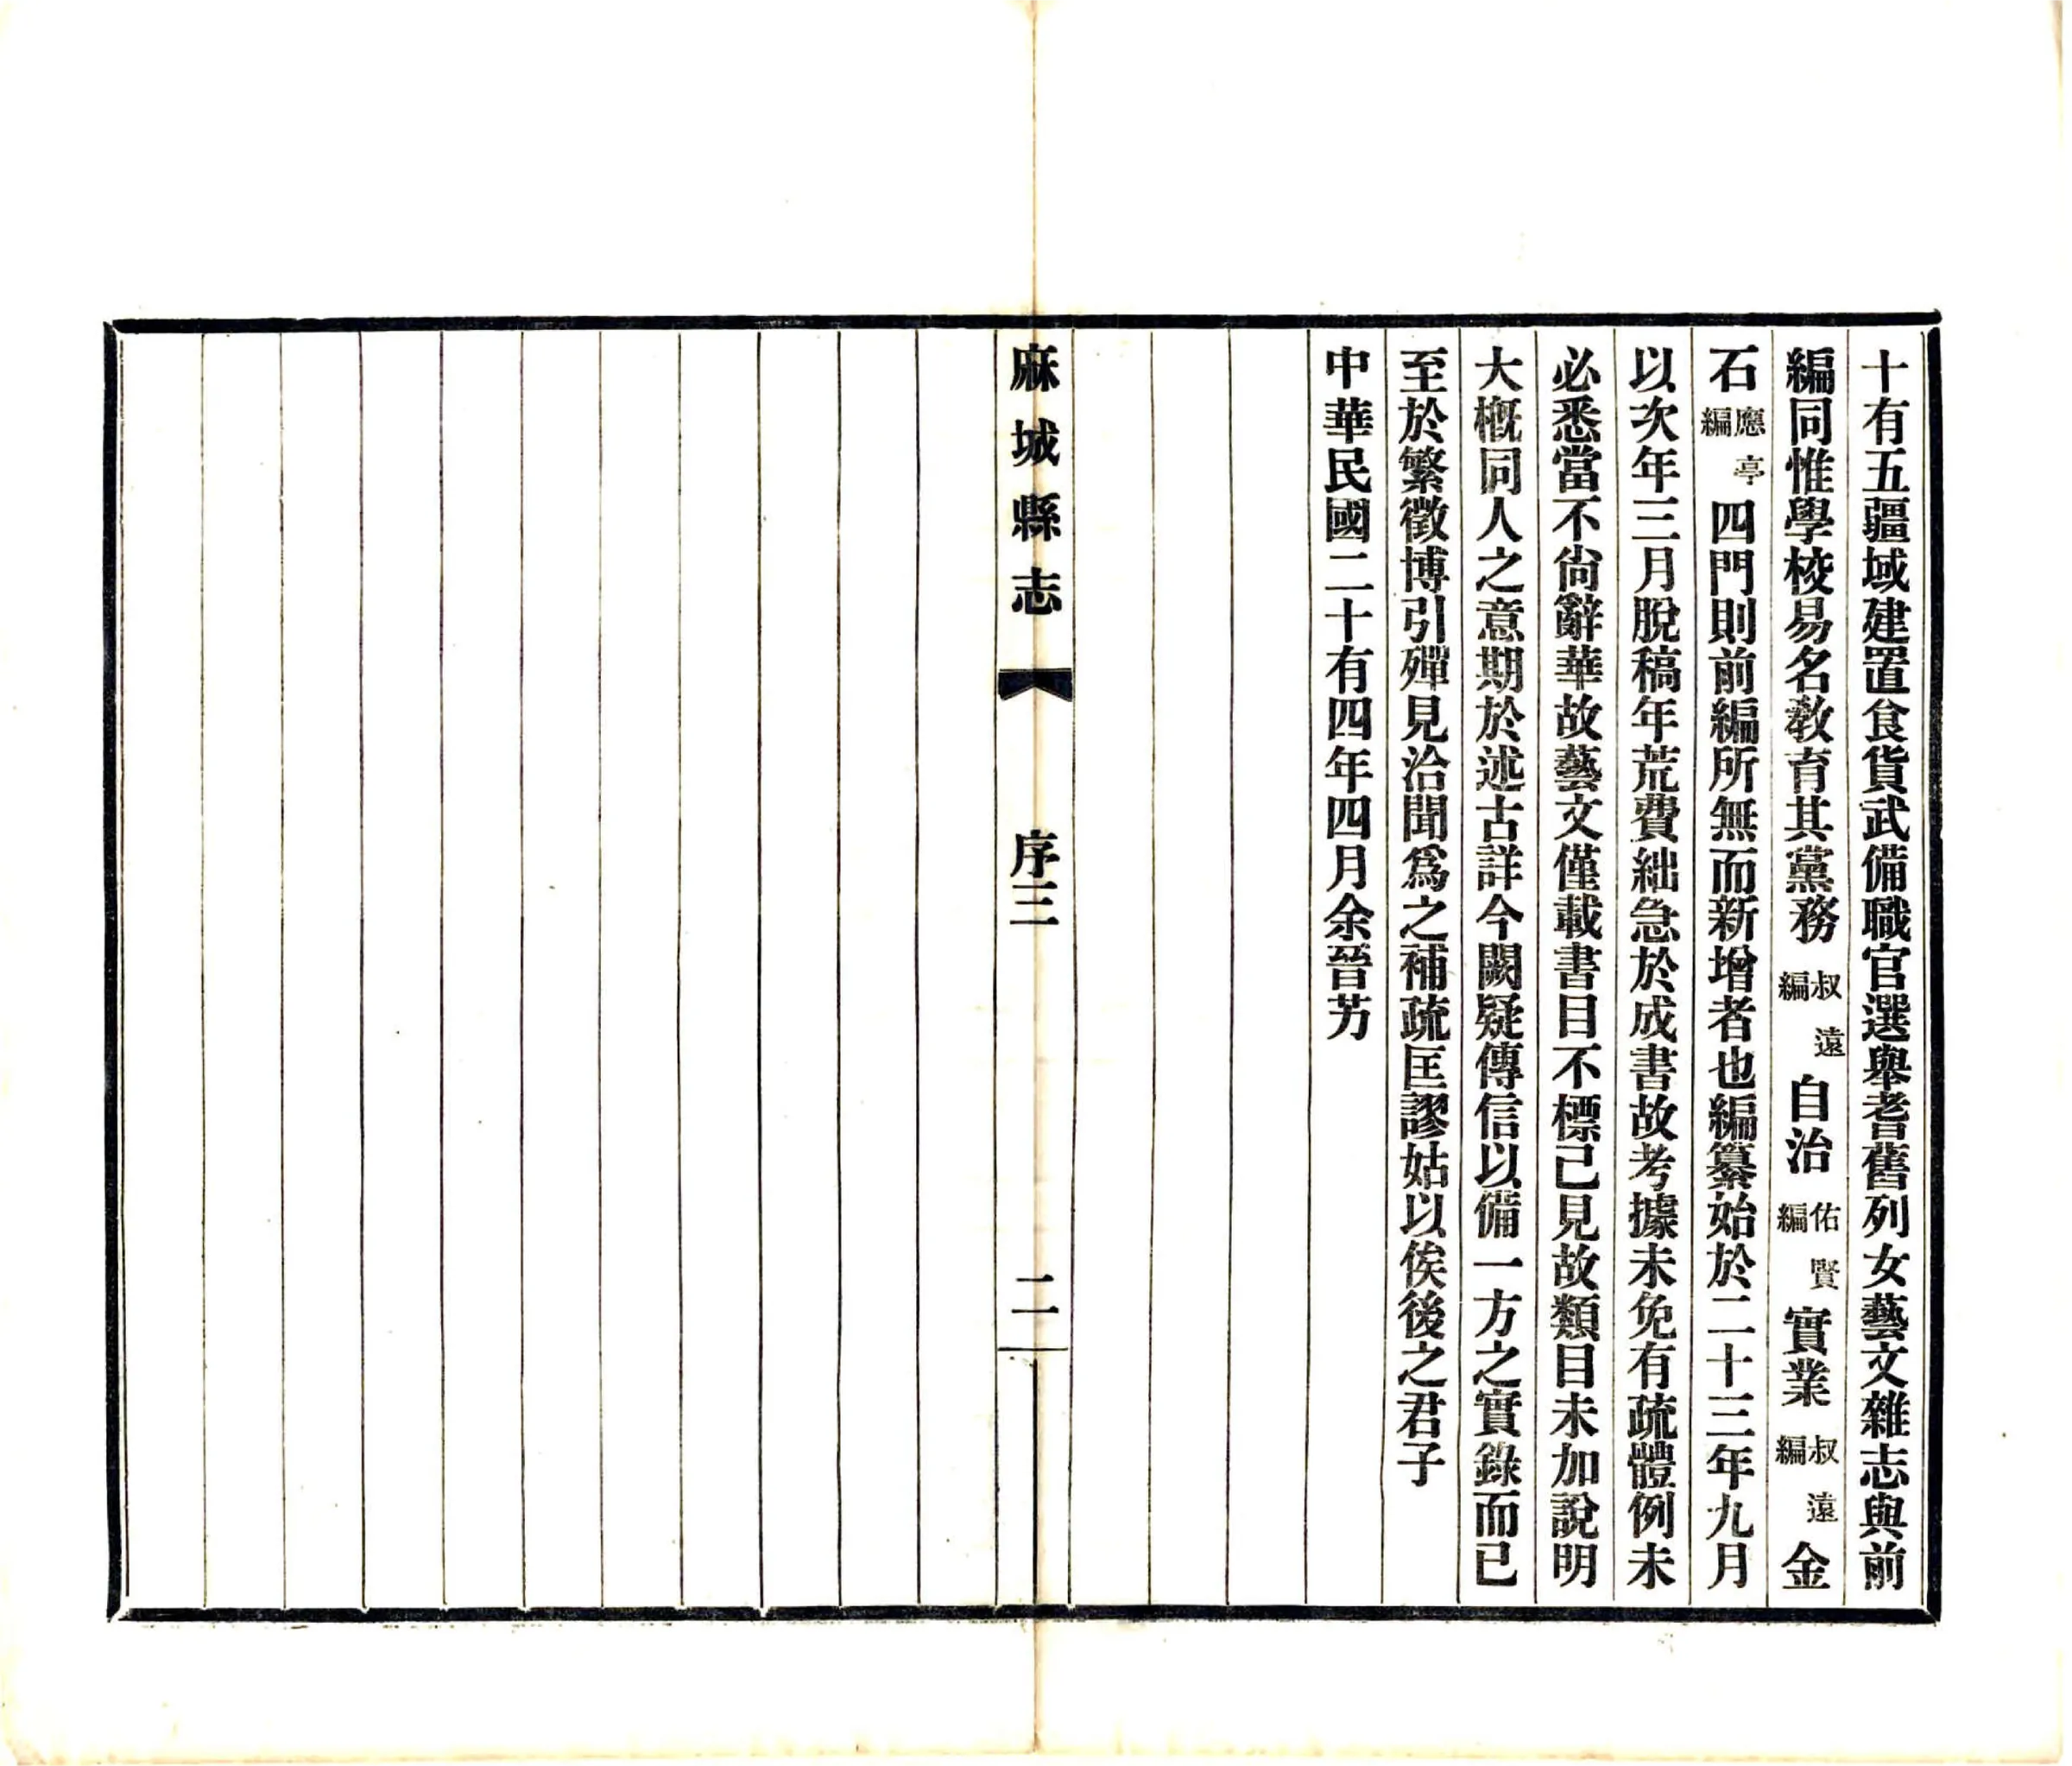 十有五疆域建置食貨武備職官選舉耆舊列女藝文雜志與前
編同惟學校易名教育其黨務叔遠編自治佑賢編實業叔遠編金
石應亭編四門則前編所無而新增者也編纂始於二十三年九月
以次年三月脫稿年荒費絀急於成書故考據未免有疏體例未
必悉當不尙辭華故藝文僅載書目不標已見故類目未加說明
大槪同人之意期於述古詳今闕疑傳信以備一方之實錄而已
至於繁徵博引殫見洽聞爲之補疏匡謬姑以俟後之君子
中華民國二十有四年四月余晉芳
麻城縣志 序三 二